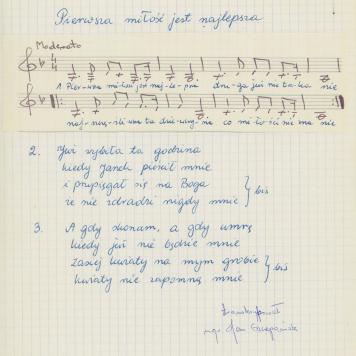 Pierwsza miłość jest najlepsza
Moderato
1. Pier-wsza miłość jest naj-le-psza dru-ga już nie ta-ka nie
naj-
2. Już wybiła ta godzina
kiedy Janek pieścił mnie
i przysięgał się na Boga
że nie zdradzi nigdy mnie } bis
3. A gdy skonam, a gdy umrę
kiedy już nie będzie mnie
zasiej kwiaty na mym grobie
kwiaty nie zapomną mnie } bis
mgr Jan